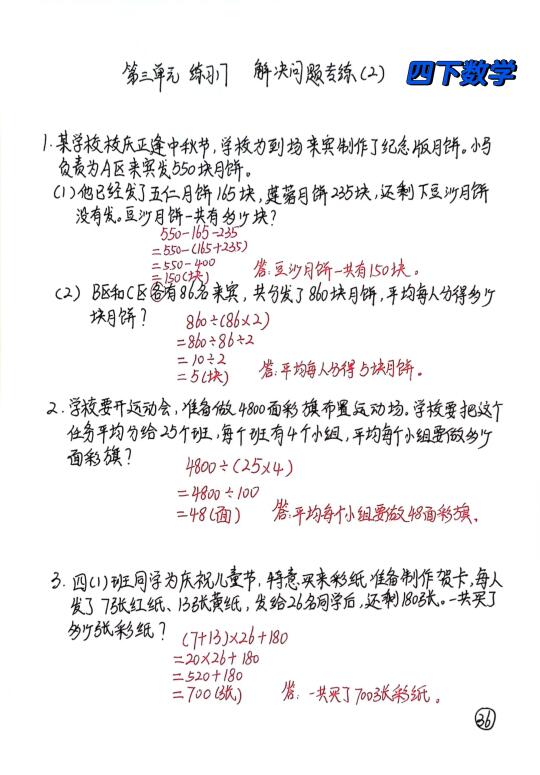 第三单元 练习17 解决问题专练(2) 四下数学
1.某学校校庆正逢中秋节,学校为到场来宾制作了纪念版月饼。小马
负责为A区来宾发550块月饼。
(1)他已经发了五仁月饼165块,莲蓉月饼235块,还剩下豆沙月饼
没有发。豆沙月饼一共有多少块?
550-165-235
=550-(165+235)
=550-400
=150(块) 答:豆沙月饼一共有150块。
(2) B区和C区各有86名来宾,共分发了860块月饼,平均每人分得多少
块月饼?
860÷(86×2)
=860÷86÷2
=10÷2
=5(块) 答:平均每人分得5块月饼。
2.学校要开运动会,准备做4800面彩旗布置运动场。学校要把这个
任务平均分给25个班,每个班有4个小组,平均每个小组要做多少
面彩旗?
4800÷(25×4)
=4800÷100
=48(面) 答:平均每个小组要做48面彩旗。
3.四(1)班同学为庆祝儿童节,特意买来彩纸准备制作贺卡,每人
发了7张红纸、13张黄纸,发给26名同学后,还剩180张。一共买了
多少张彩纸?
(7+13)×26+180
=20×26+180
=520+180
=700(张) 答:一共买了700张彩纸。
36